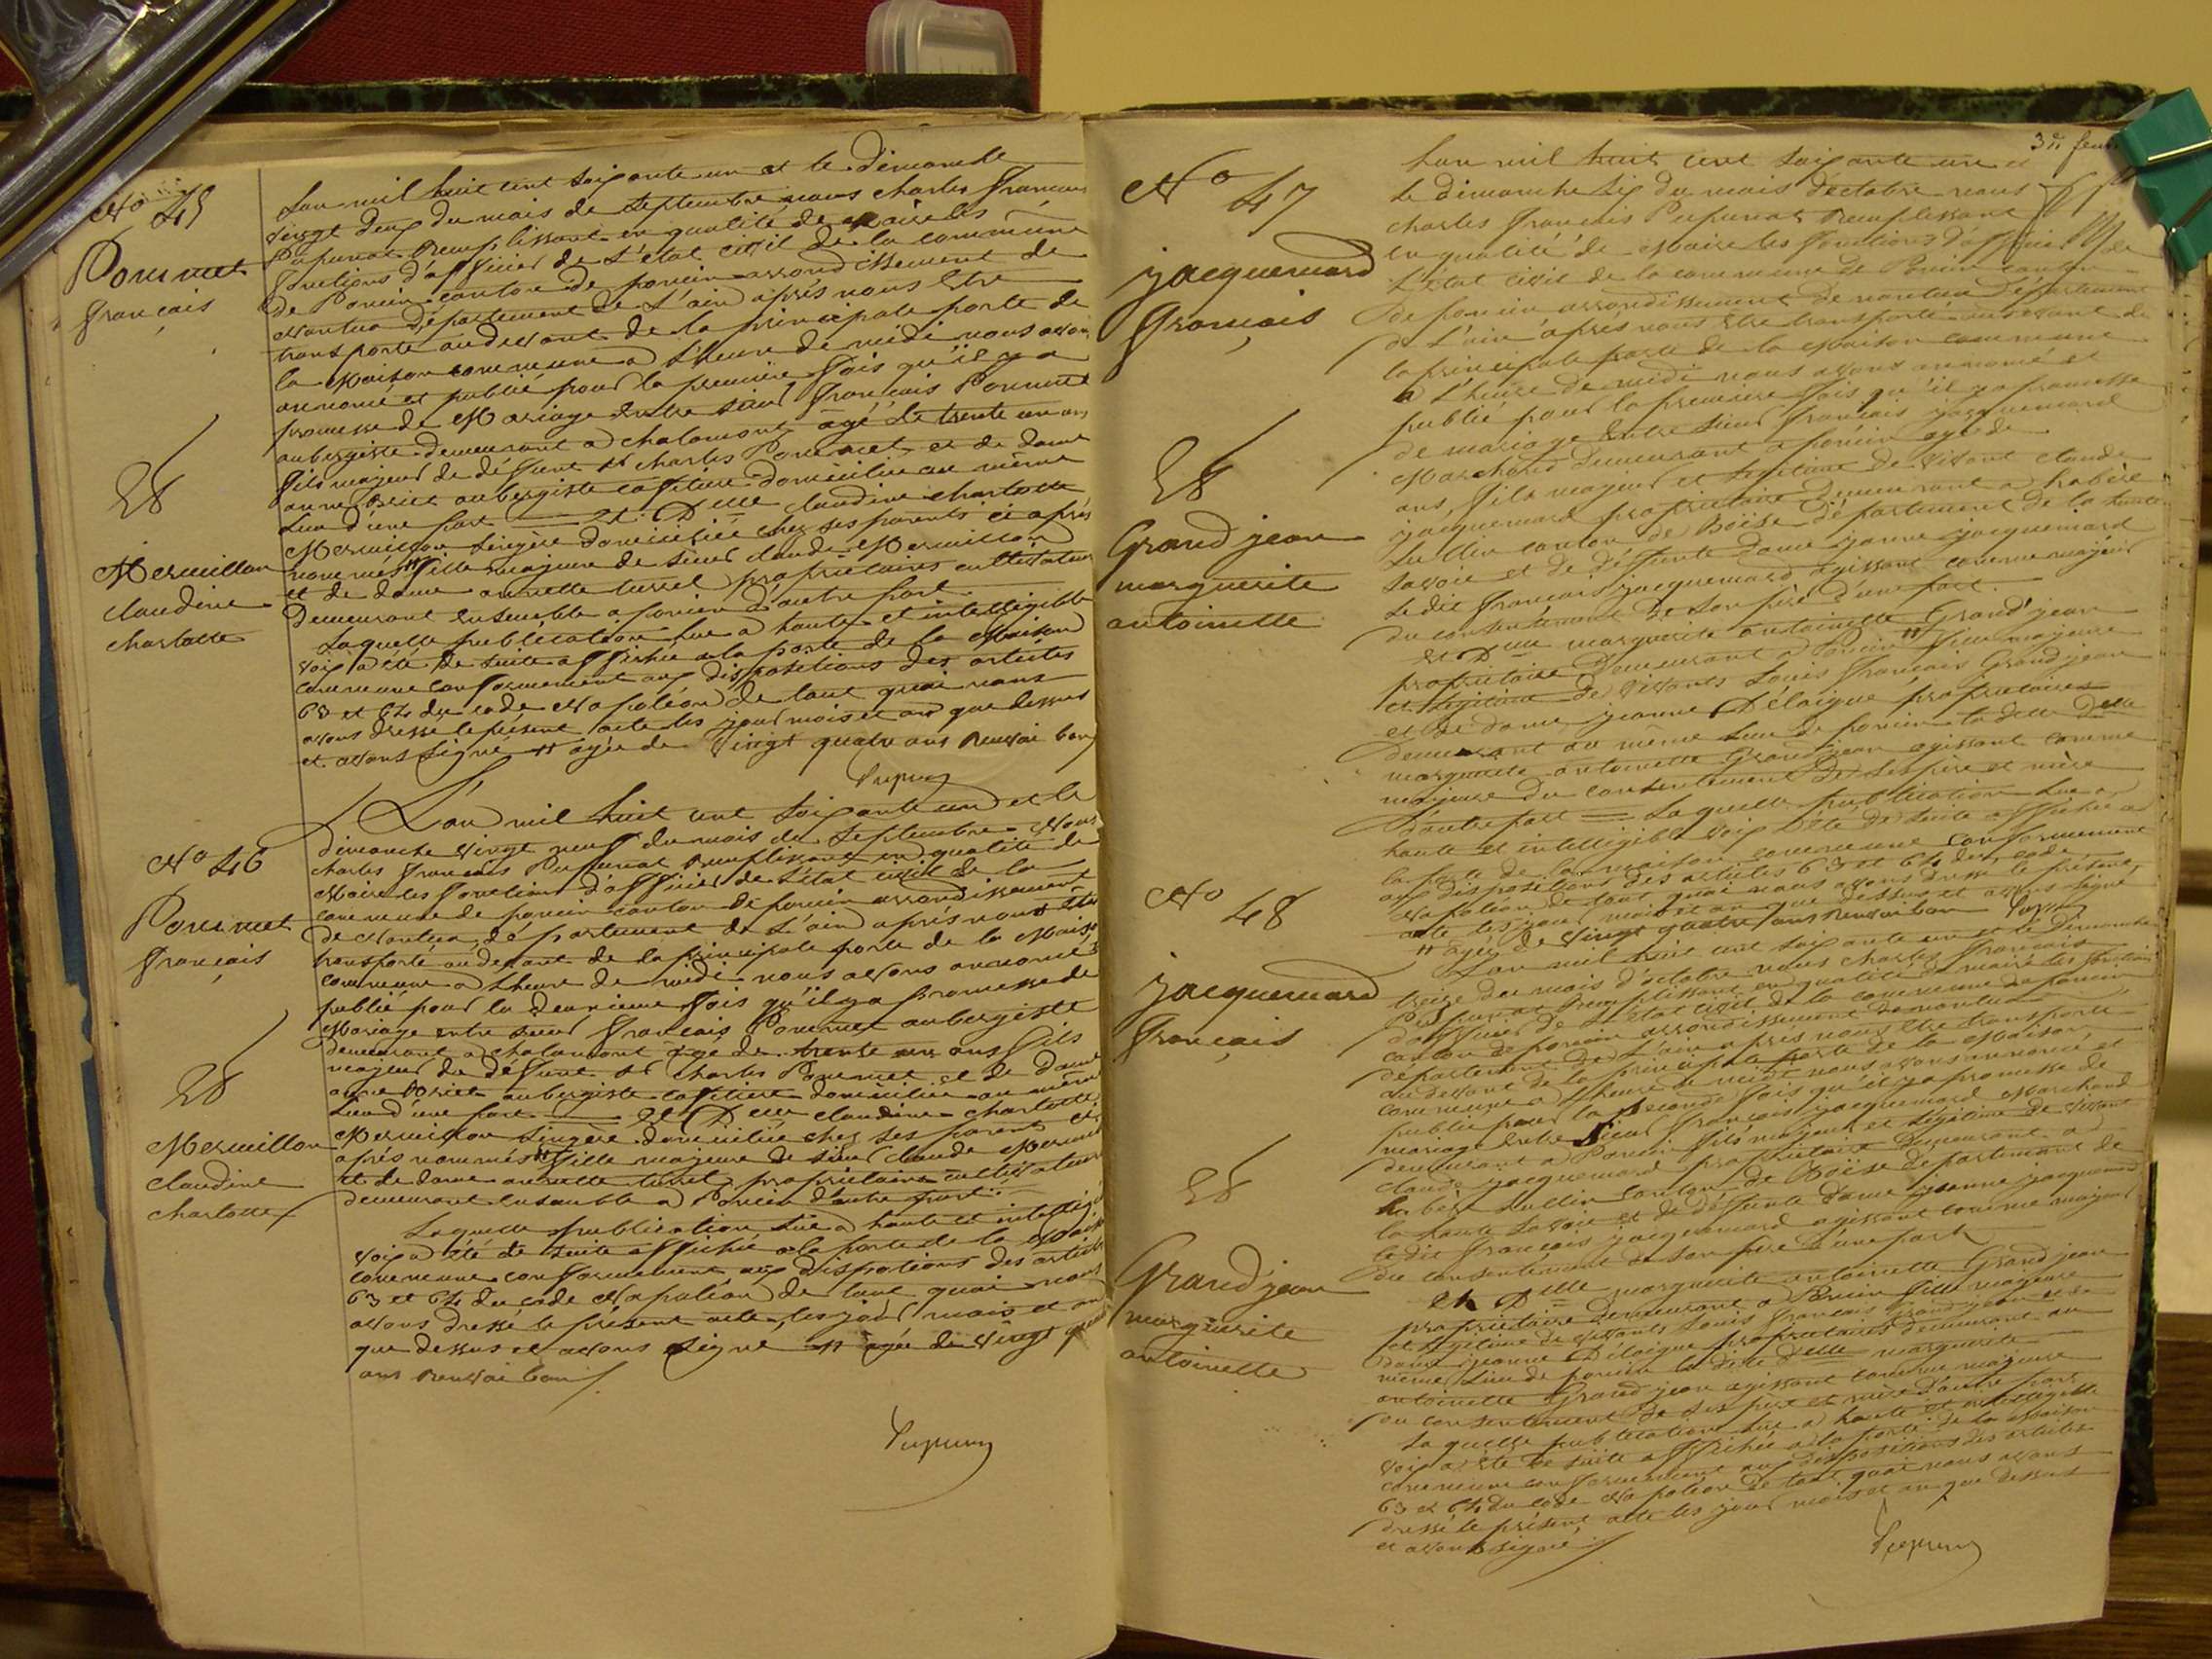 No 45
Pommet
françois
&
Mermillon
claudine
charlotte
Lan mil huit cent soixante un et le dimanche
vingt deux du mois de septembre nous charles françois
Pupunat Remplissant en qualité de maire les
fonctions d'officier de L'état civil de la commune
de Poncin canton de poncin arrondissement de
Nantua département de L'ain après nous Etre
transporté audevant de la principale porte de
la Maison commune a L'heure de midi nous avons
annoncé et publié pour la première fois qu'il y a
promesse de Mariage Entre sieur françois Pommet
aubergiste demeurant a chalamont âgé de trente un ans
fils majeur de défunt Sr charles Pommet et de dame
anne aubergiste cafetière domiciliée au même
Lieu d'une part Et Delle claudine charlotte
Mermillon Lingère domiciliée chez ses parents ci après
nommés # fille majeure de sieur claude Mermillon
et de dame annette turrel propriétaires cultivateurs
Demeurant Ensemble a poncin D'autre part
Laquelle publication Lue a haute et intelligible
voix a été de suite affichée a la porte de la Maison
commune conformement aux dispositions des articles
63 et 64 du code Napoléon de tout quoi nous
avons dressé le présent acte les jour mois et an que dessus
et avons signé # agée de vingt quatre ans Renvoi bon
No 46
Pommet
françois
&
Mermillon
claudine
charlotte
L'an mil huit cent soixante un et le
dimanche vingt neuf du mois de Septembre Nous
charles françois Pupunat Remplissant en qualité de
Maire les fonctions d'officier de L'état civil de la
commune de poncin canton de poncin arrondissement
de Nantua département de L'ain après nous Etre
transporté audevant de la principale porte de la Maison
commune a L'heure de midi nous avons annoncé &
publié pour la deuxieme fois qu'il y a promesse de
Mariage entre sieur françois Pommet aubergiste
demeurant a chalamont âgé de trente un ans fils
majeur de défunt Sr charles Pommet et de Dame
anne aubergiste cafetière domiciliée au même
Lieu d'une part Et Delle claudine charlotte
Mermillon Lingère domiciliée chez ses parent ci
après nommés # fille majeure de sieur claude Mermillon
et de dame annette turrel propriétaires cultivateurs
demeurant Ensemble a Poncin d'autre part
Laquelle publication Lue a haute et intelligi
voix a été de suite affichée a la porte de la Maison
commune conformement aux dispotions des articles
63 et 64 du code Napoléon de tout quoi nous
avons dressé le présent acte les jour mois et an
que dessus et avons signé # agée de vingt
ans Renvoi bon
3e feuil
No 47
jacquemard
françois
&
Grandjean
marguerite
antoinette
Lan mil huit cent soixante un et
Le dimanche six du mois d'octobre nous
charles françois Pupunat Remplissant
en qualité de Maire les fonctions d'officier de
L'état civil de la commune de Poncin canton
de poncin arrondissement de nantua Département
de L'ain après nous Etre transporté audevant de
la principale porte de la Maison commune
a L'heure de midi nous avons annoncé et
publié pour la premiere fois qu'il y a promesse
de mariage Entre sieur françois jacquemard
Marchand Demeurant a poncin agé de
ans, fils majeur et Legitime de vivant claude
jacquemard propriétaire Demeurant a habère
Lullin canton de Boëge Département de la haute
savoie et de défunte Dame jeanne jacquemard
Ledit françois jacquemard agissant comme majeur
du consentement de son père d'une part.
Et Delle marguerite antoinette Grandjean
propriétaire Demeurant a Poncin # fille majeure
et Légitime de vivants Louis françois Grandjean
et de dame jeanne Délaigue propriétaires
demeurant au même Lieu de poncin la dite Delle
marguerite antoinette Grandjean agissant comme
majeure du consentement de ses père et mère
D'autre part Laquelle publication Lue a
haute et intelligible voix a été de suite affichée a
la porte de la maison commune conformement
aux dispositions des articles 63 et 64 du code
Napoléon de tout quoi nous avons dressé le présent
acte les jour mois et an que dessus et avons signé
# agée de vingt quatre ans Renvoi bon
No 48
jacquemard
françois
&
Grandjean
marguerite
antoinette
Lan mil huit cent soixante un et le Dimanche
treize du mois d'octobre nous charles françois
Pupunat Remplissant en qualité de maire les fonctions
d'officier de L'état civil de la commune de poncin
canton de poncin arrondissement de nantua
département de L'ain après nous Etre transporté
au devant de la principale porte de la Maison
commune a L'heure de midi nous avons annoncé et
publié pour la seconde fois qu'il y a promesse de
mariage Entre Sieur françois jacquemard Marchand
demeurant a Poncin fils majeur et Légitime de vivant
claude jacquemard propriétaire Demeurant a
habère Lullin canton de Boëge Département de
la haute savoie et de défunte Dame jeanne jacquemard
le dit françois jacquemard agissant comme majeur
du consentement de son père d'une part
Et Delle marguerite antoinette Grandjean
propriétaire Demeurant a Poncin fille majeure
et Légitime de vivants Louis françois Grandjean et de
dame jeanne Délaigue propriétaires demeurant au
même Lieu de poncin la dite Delle marguerite
antoinette Grandjean agissant comme majeure
du consentement de ses père et mère D'autre part
Laquelle publication Lue a haute et intelligible
voix a été de suite affichée a la porte de la Maison
commune conformement aux dispositions des articles
63 et 64 du code Napoléon de tout quoi nous avons
dressé le présent acte les jour mois et an que dessus
et avons signé